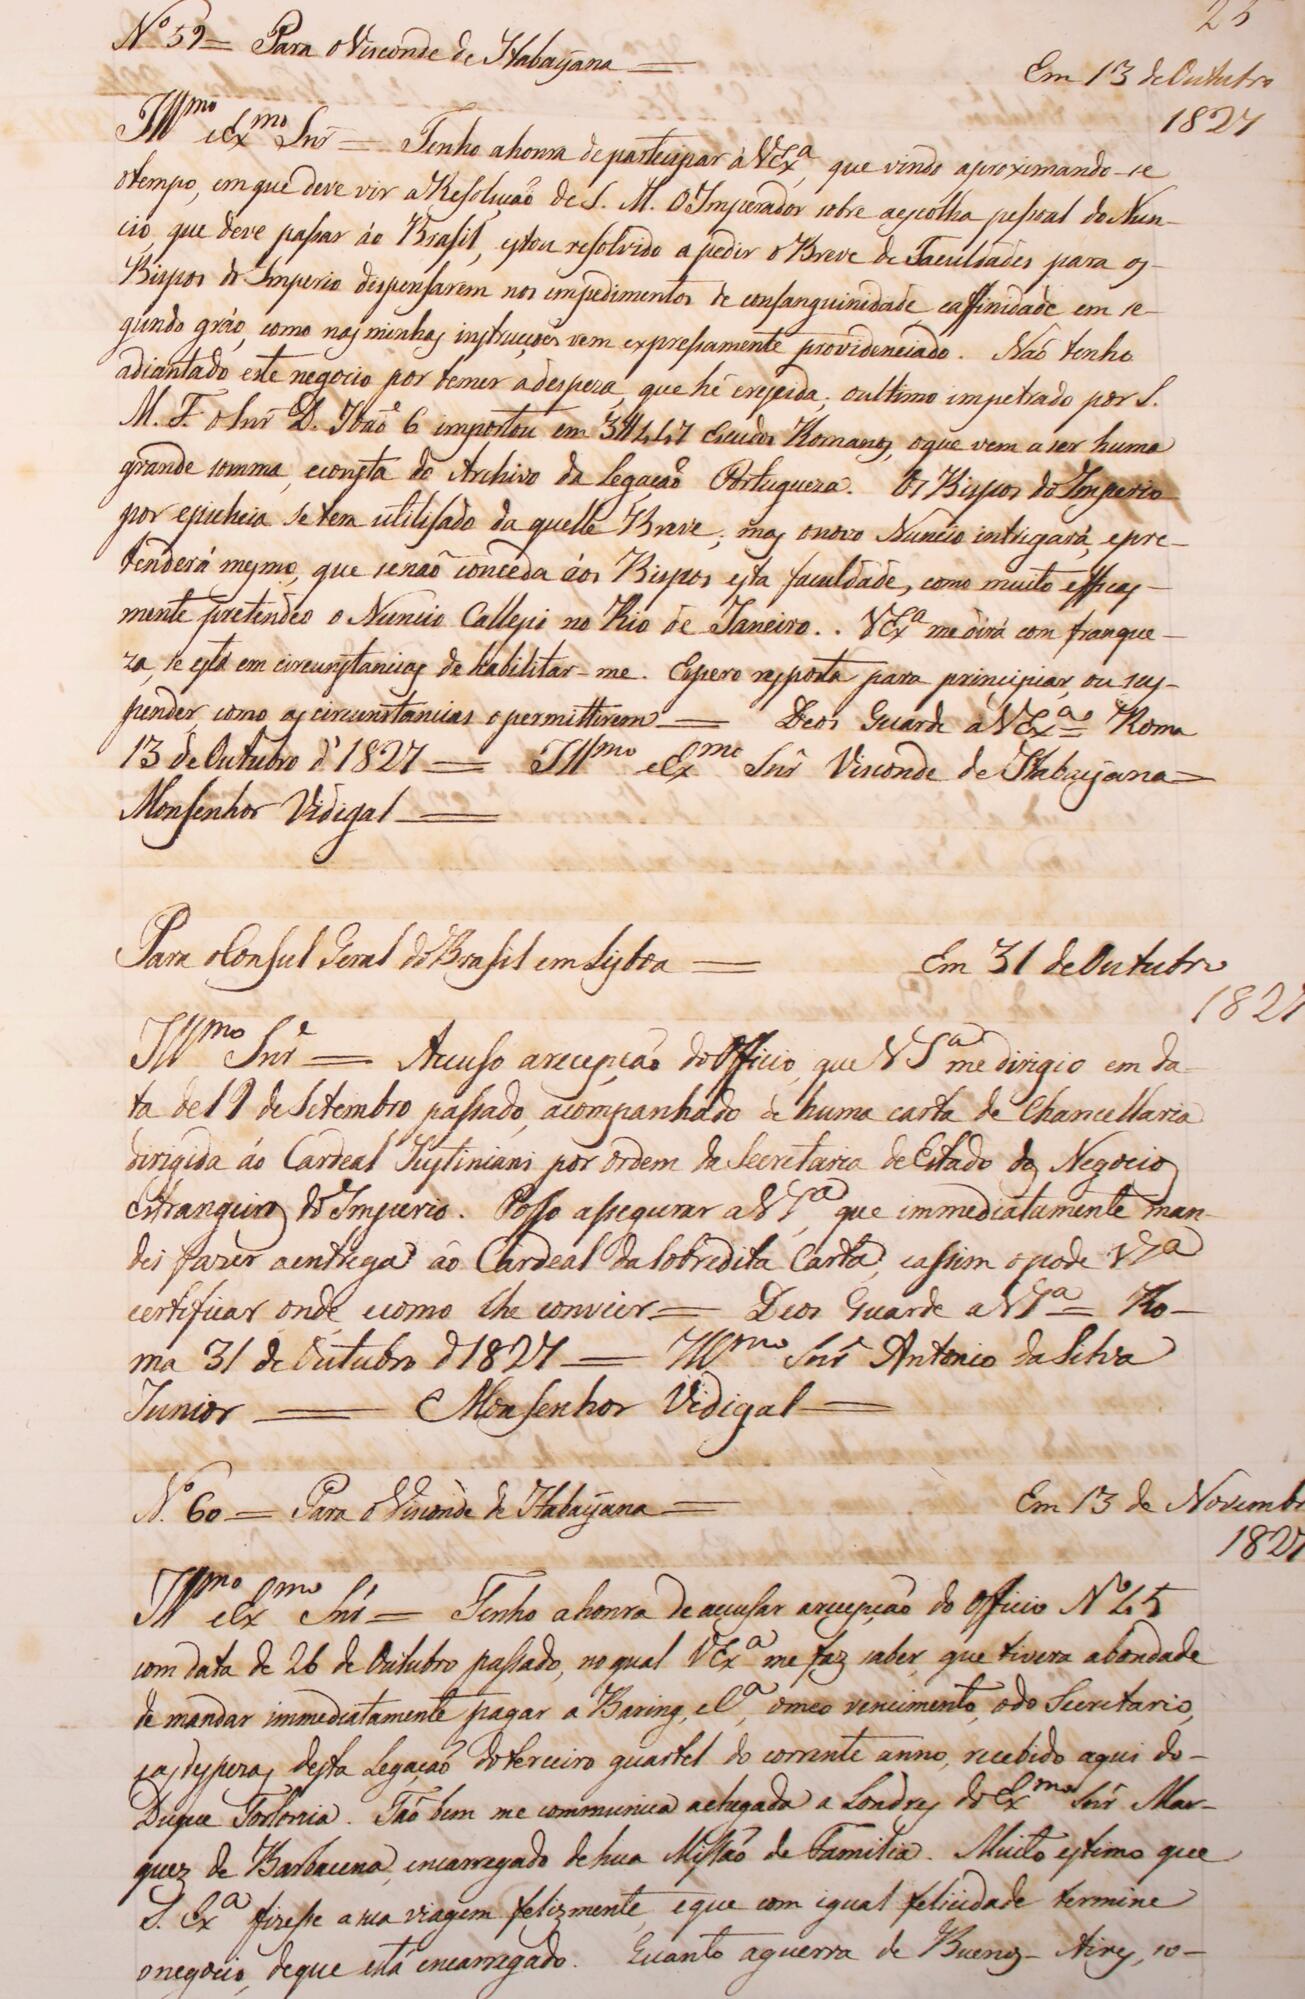 25
Nº 59 = Para o Visconde de Itabayana =
Em 13 de Outubro
1827
Illmo e Exmo Snr = Tenho a honra de participar á V Exa, que vindo aproximando-se
o tempo, em que deve vir a Resolução de S. M. O Imperador sobre a escolha pessoal do Nun-
cio, que deve passar áo Brasil, estou resolvido a pedir o Breve de Faculdades para os
Bispos do Imperio dispensarem nos impedimentos de consanguinidade e affinidade em se-
gundo gráo, como nas minhas instrucções vem expressamente providenciado. Não tenho
adiantado este negocio por temer a despeza, que hé crescida; o ultimo impetrado por S.
M. F. o Snr D. João 6 importou em 3447 Escudos Romanos, o que vem a ser huma
grande somma, e consta do Archivo da Legação Portugueza. Os Bispos do Imperio
por epicheia se tem utilisado da quelle Breve; mas o novo Nuncio intrigará, e pre-
tenderá mesmo, que se não conceda áos Bispos esta faculdade, como muito efficas-
mente pretendeo o Nuncio Callepi no Rio de Janeiro.. V Exa me dirá com franque-
za, se está em circunstancias de habilitar-me. Espero resposta para principiar, ou sus-
pender como as circunstancias o permittirem = Deos Guarde á V Exa = Roma
13 de Outubro d' 1827 = Illmo e Exmo Snr Visconde de Itabayana =
Monsenhor Vidigal =
Para o Consul Geral do Brasil em Lisboa =
Em 31 de Outubro
1827
Illmo Snr = Accuso a recepção do Officio, que V Sa me dirigio em da-
ta de 19 de Setembro passado, acompanhado de huma carta de Chancellaria
dirigida áo Cardeal Justiniani por ordem da Secretaria de Estado dos Negocios
Estrangeiros do Imperio. Posso assegurar a V Sa, que immediatamente man-
dei fazer a entrega áo Cardeal da sobredita Carta, e assim o pode V Sa
certificar onde, e como lhe convier = Deos Guarde a V Sa = Ro-
ma 31 de Outubro d 1827 = Illmo Snr Antonio da Silva
Junior = Monsenhor Vidigal =
Nº 60 = Para o Visconde de Itabayana =
Em 13 de Novembr
1827
Illmo e Exmo Snr = Tenho a honra de accusar a recepção do Officio Nº 45
com data de 26 de Outubro passado, no qual V Exa me faz saber, que tivera a bondade
de mandar immediatamente pagar a Baring, e Ca, o meo vencimento, o do Secretario,
e as despezas desta Legação do terceiro quartel do corrente anno, recebido aqui do
Duque Torlonia. Tão bem me communica a chegada a Londres do Exmo Snr Mar-
quez de Barbacena, encarregado de hua Missão de Familia. Muito estimo que
S. Exa fizesse a sua viagem felizmente, e que com igual felicidade termine
o negocio, de que está encarregado. Quanto a guerra de Buenos-Aires, so-